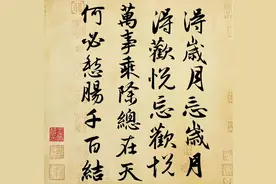 得歲月忘歲月
得歡悅忘歡悅
萬事乘除總在天
何必愁腸千百結